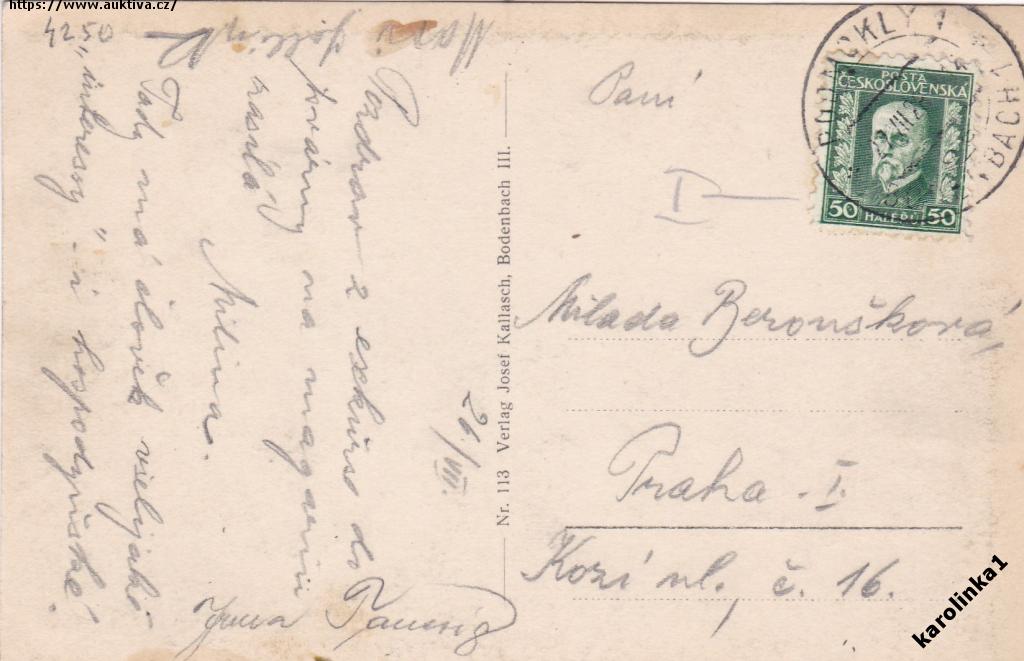 https://www.auktiva.cz/
4250
Pozdrav z exkurse do
továrny na margarin
zasílá
Milina.
Tady má člověk všelijaké
„interesy“ i hospodyňské!
26/VIII.
Nr. 113 Verlag Josef Kallasch, Bodenbach III.
POŠTA
ČESKOSLOVENSKÁ
50 HALÉŘŮ 50
Paní
I
Milada Beroušková,
Praha - I.
Kozí ul., č. 16.
karolinka1